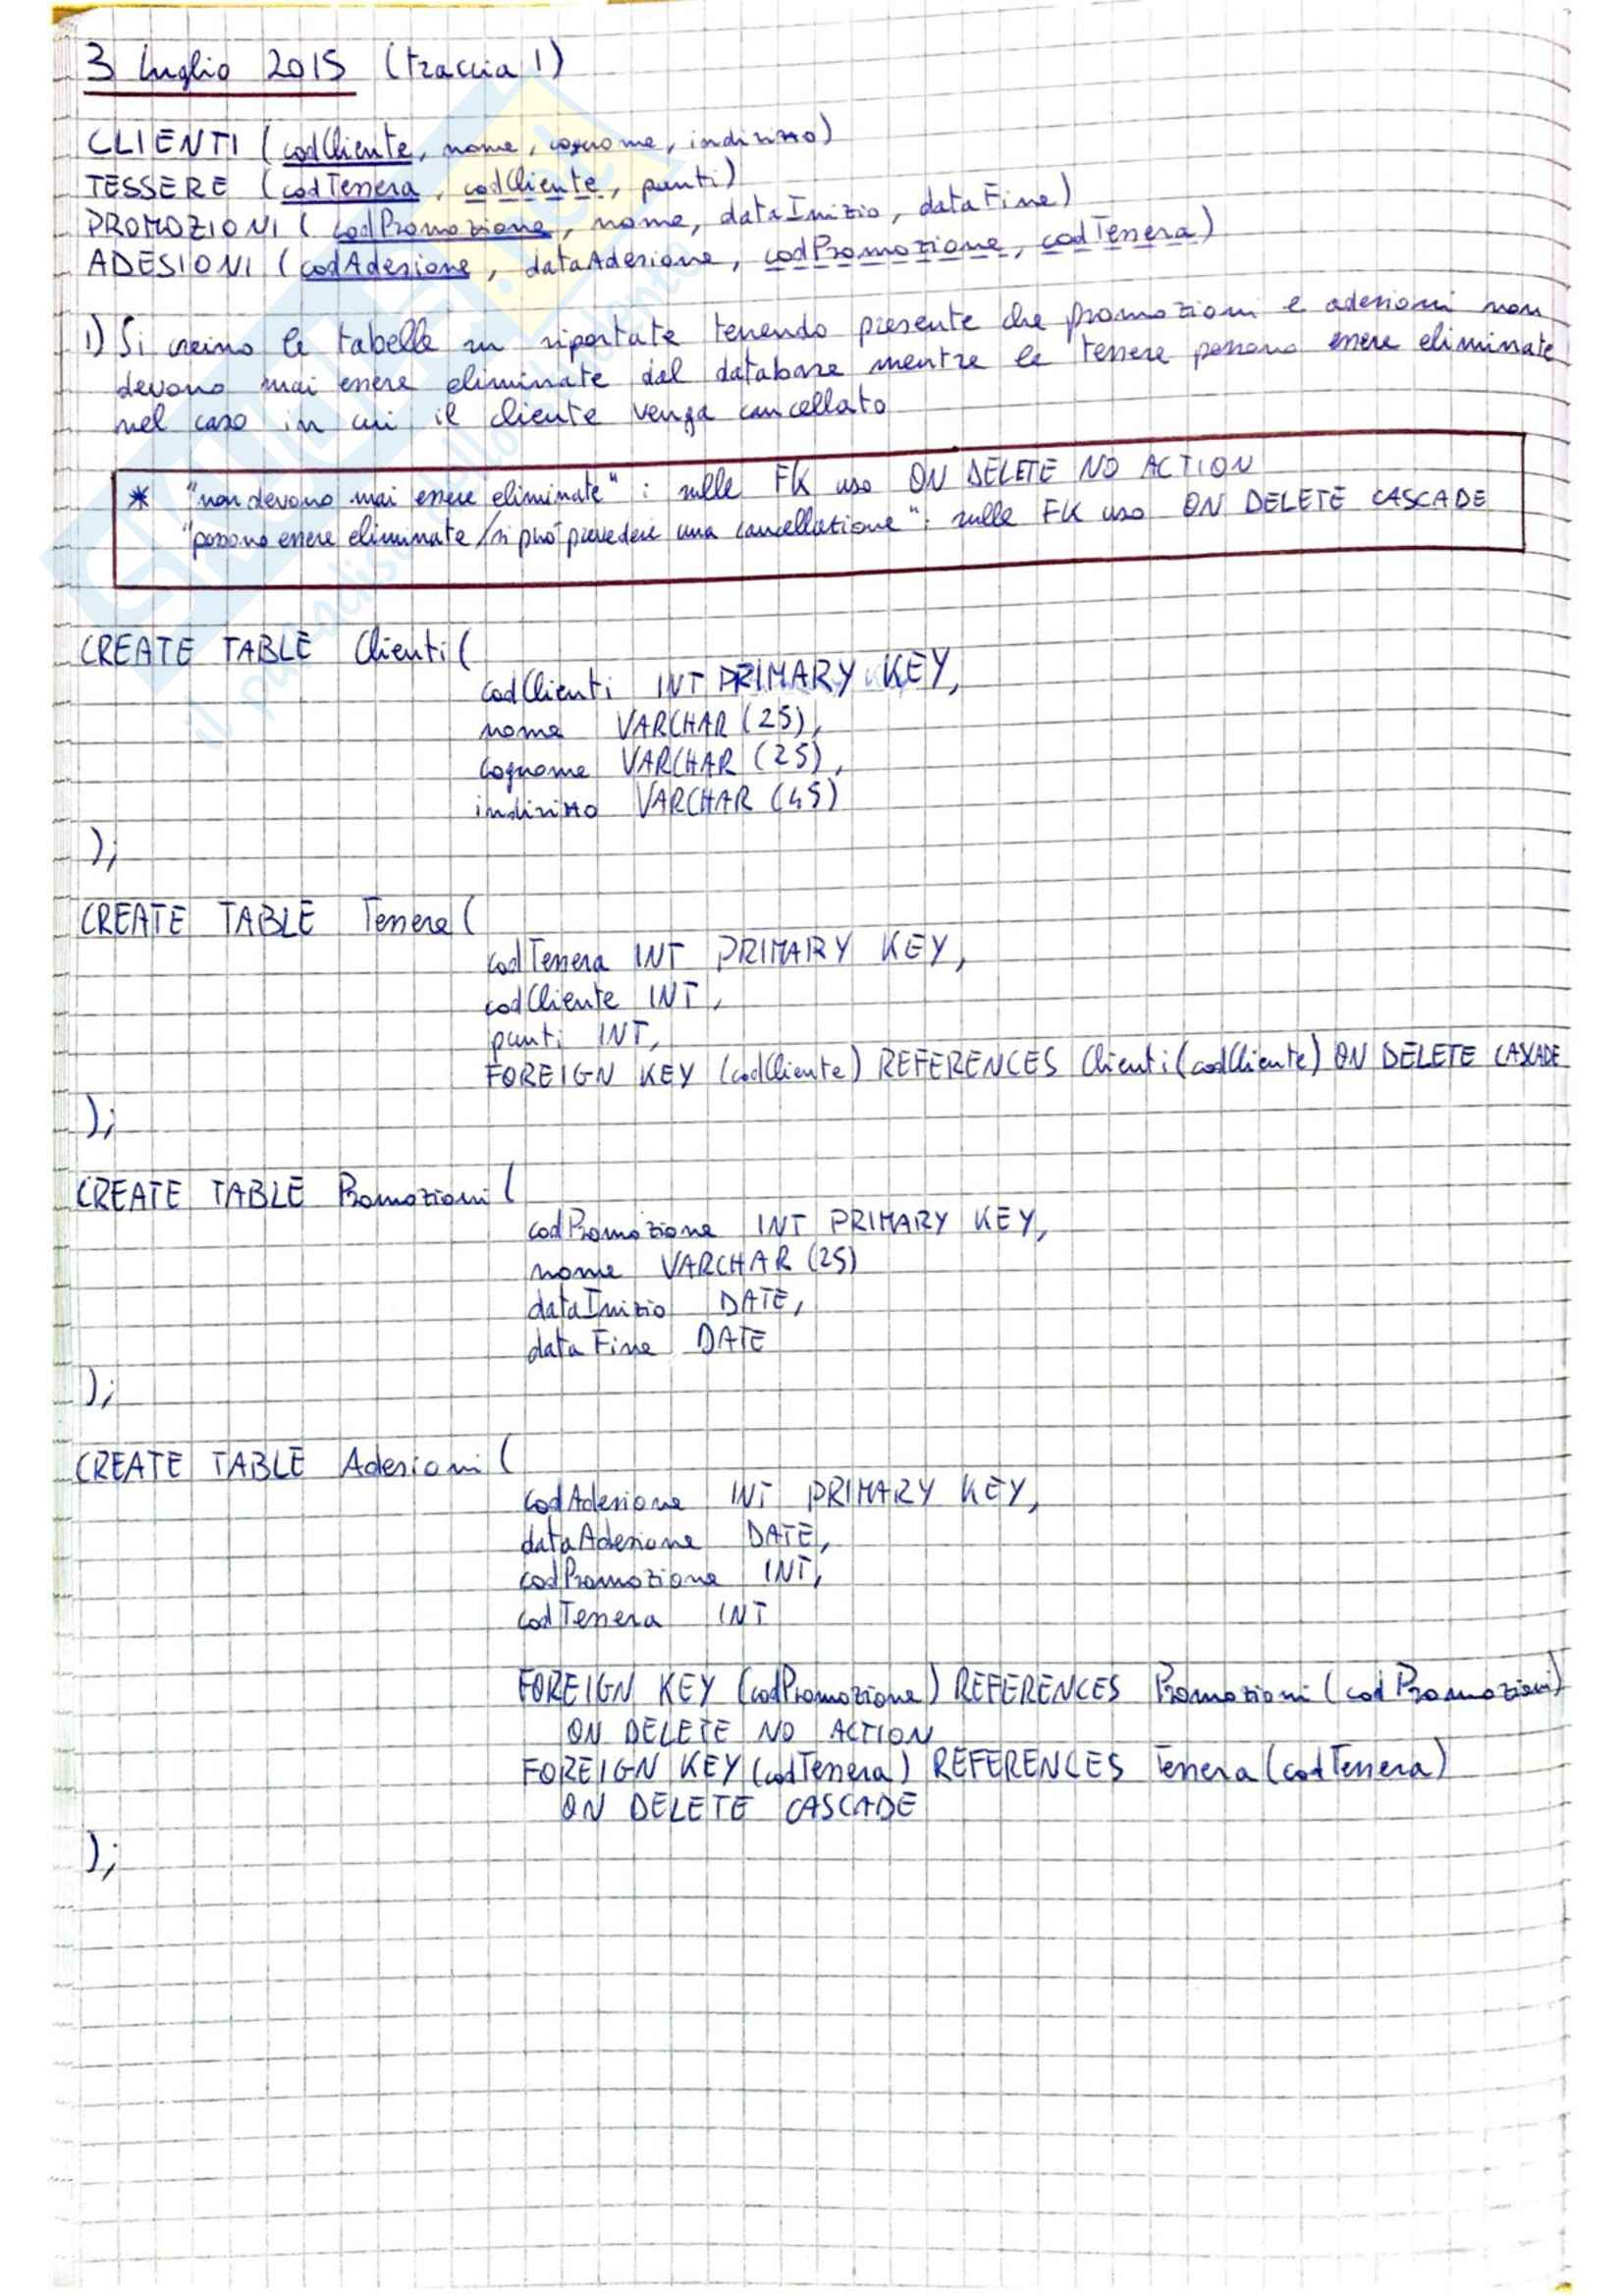 3 luglio 2015 (traccia 1)
CLIENTI (codCliente, nome, cognome, indirizzo)
TESSERE (codTessera, codCliente, punti)
PROMOZIONI (codPromozione, nome, dataInizio, dataFine)
ADESIONI (codAdesione, dataAdesione, codPromozione, codTessera)
1) Si creino le tabelle su riportate tenendo presente che promozioni e adesioni non
devono mai essere eliminate dal database mentre le tessere possono essere eliminate
nel caso in cui il cliente venga cancellato
* "non devono mai essere eliminate": sulle FK uso ON DELETE NO ACTION
"possono essere eliminate/si può prevedere una cancellazione": sulle FK uso ON DELETE CASCADE
CREATE TABLE Clienti(
codClienti INT PRIMARY KEY,
nome VARCHAR (25),
cognome VARCHAR (25),
indirizzo VARCHAR (45)
);
CREATE TABLE Tessera(
codTessera INT PRIMARY KEY,
codCliente INT,
punti INT,
FOREIGN KEY (codCliente) REFERENCES Clienti(codCliente) ON DELETE CASCADE
);
CREATE TABLE Promozioni(
codPromozione INT PRIMARY KEY,
nome VARCHAR (25)
dataInizio DATE,
dataFine DATE
);
CREATE TABLE Adesioni(
codAdesione INT PRIMARY KEY,
dataAdesione DATE,
codPromozione INT,
codTessera INT
FOREIGN KEY (codPromozione) REFERENCES Promozioni(codPromozioni)
ON DELETE NO ACTION
FOREIGN KEY (codTessera) REFERENCES Tessera(codTessera)
ON DELETE CASCADE
);